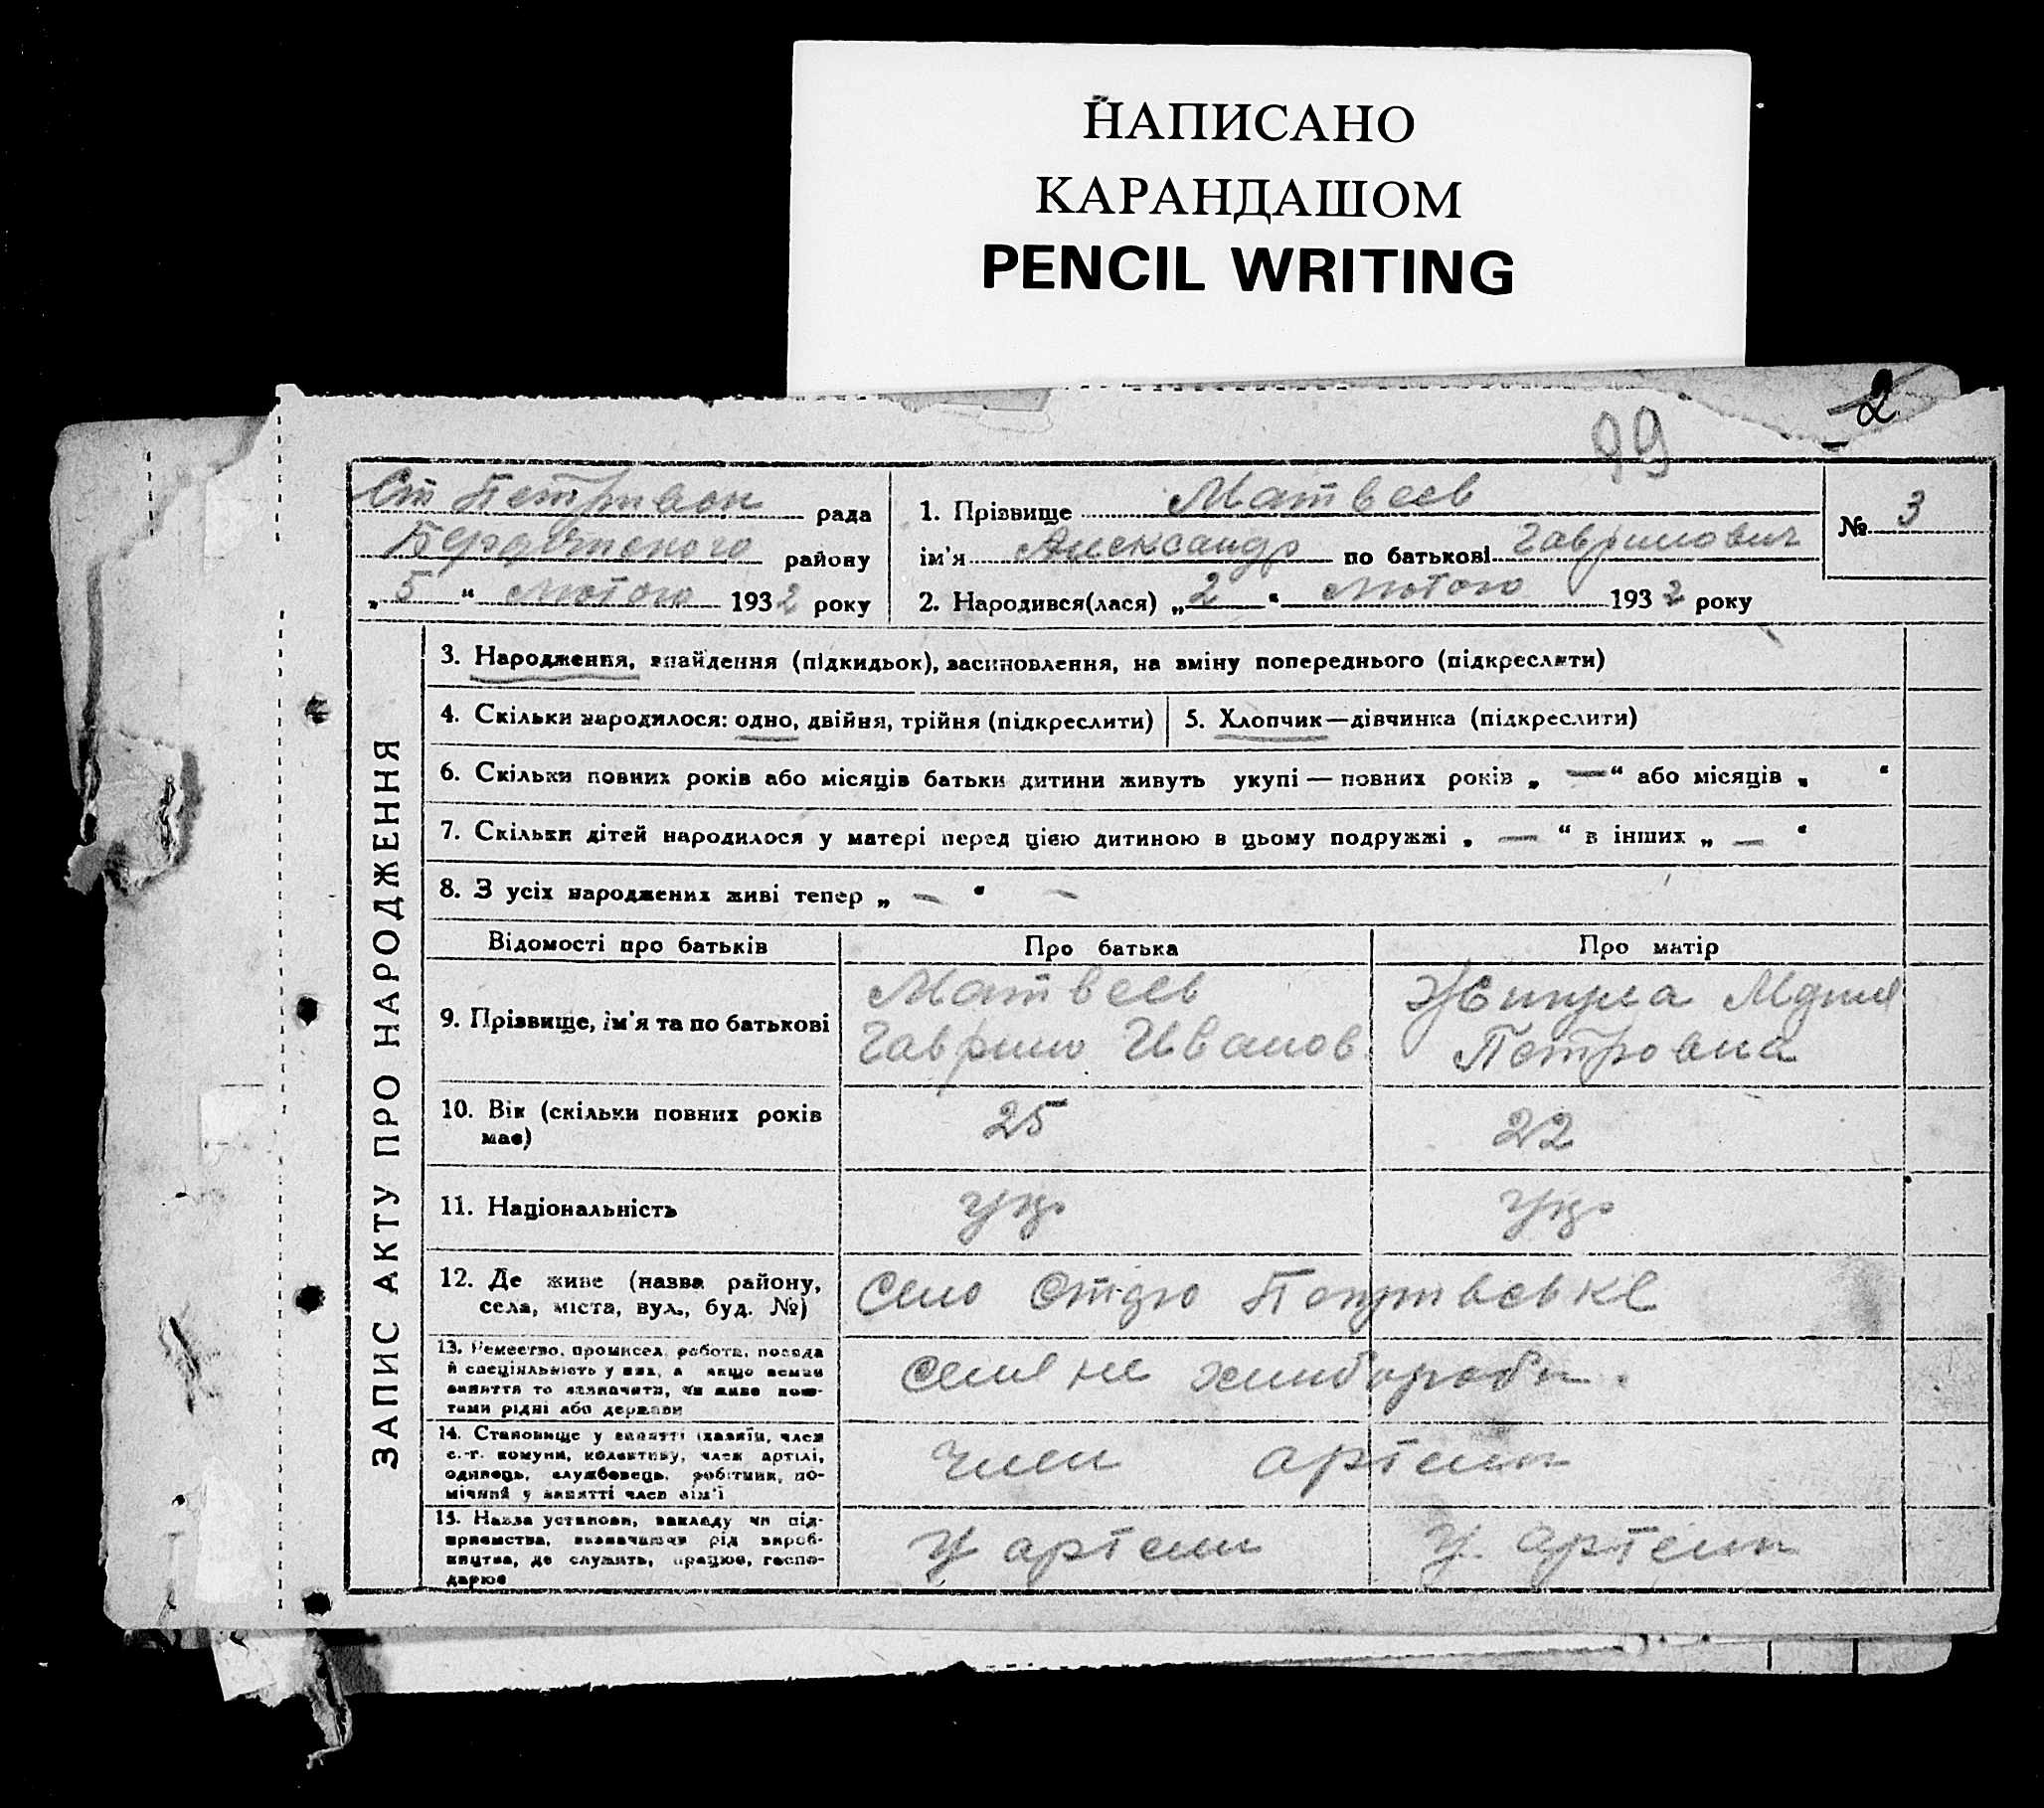 НАПИСАНО
КАРАНДАШОМ
PENCIL WRITING
2
99
Ст Петривск рада
району
„ 5 “ лютого 1932 року
1. Прізвище Матвеев
ім'я Александр по батькові Гаврилович
2. Народився(лася) „ 2 “ лютого 1932 року
№ 3
ЗАПИС АКТУ ПРО НАРОДЖЕННЯ
3. Народження, знайдення (підкидьок), засиновлення, на зміну попереднього (підкреслити)
4. Скільки народилося: одно, двійня, трійня (підкреслити)
5. Хлопчик—дівчинка (підкреслити)
6. Скільки повних років або місяців батьки дитини живуть укупі — повних років „ — “ або місяців „ “
7. Скільки дітей народилося у матері перед цією дитиною в цьому подружжі „ — “ в інших „ — “
8. З усіх народжених живі тепер „ — “ —
Відомості про батьків
Про батька
Про матір
9. Прізвище, ім'я та по батькові
Матвеев
Гаврило Иванов
Петровна
10. Вік (скільки повних років
має)
25
22
11. Національність
укр
укр
12. Де живе (назва району,
села, міста, вул., буд. №)
Село
13. Ремество, промисел, робота, посада
й спеціяльність у них, а якщо немає
заняття то зазначити, чи живе кош-
тами рідні або держави
хлибороби.
14. Становище у занятті (хазяїн, член
с.-г. комуни, колективу, член артілі,
одинець, службовець, робітник, по-
мічний у занятті член сім'ї
член артели
15. Назва установи, закладу чи під-
приємства, визначаючи рід вироб-
ництва, де служить, працює, госпо-
дарює
У артели
У артели